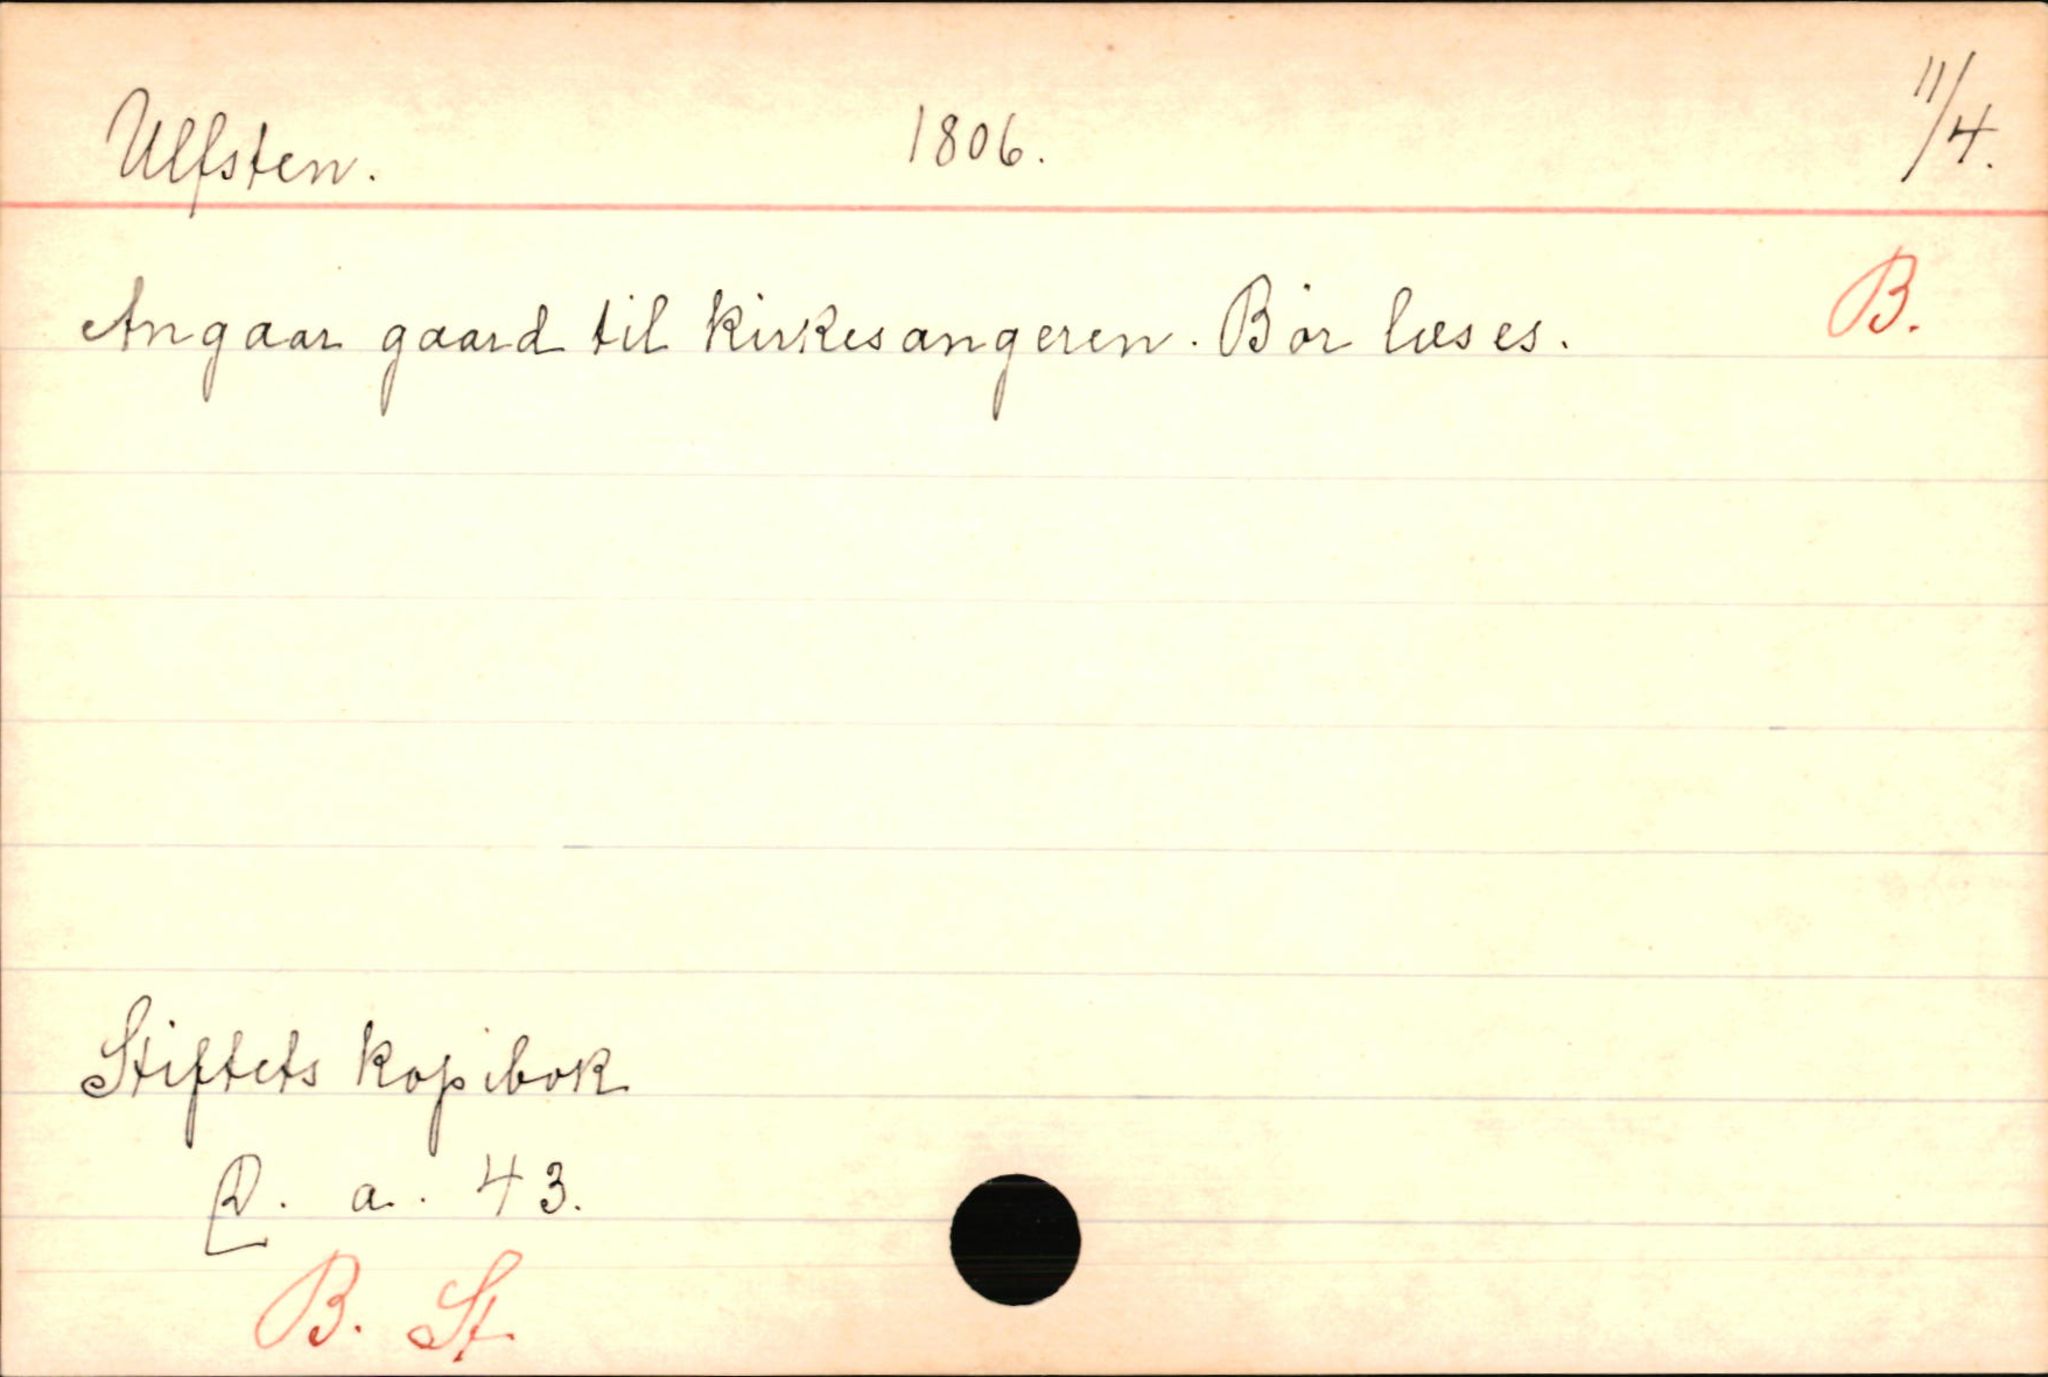 Ulfsten. 1806. 11/4.
Angaar gaard til kirkesangeren. Bör læses. B.
Stiftets kopibok
a. 43.
B. St